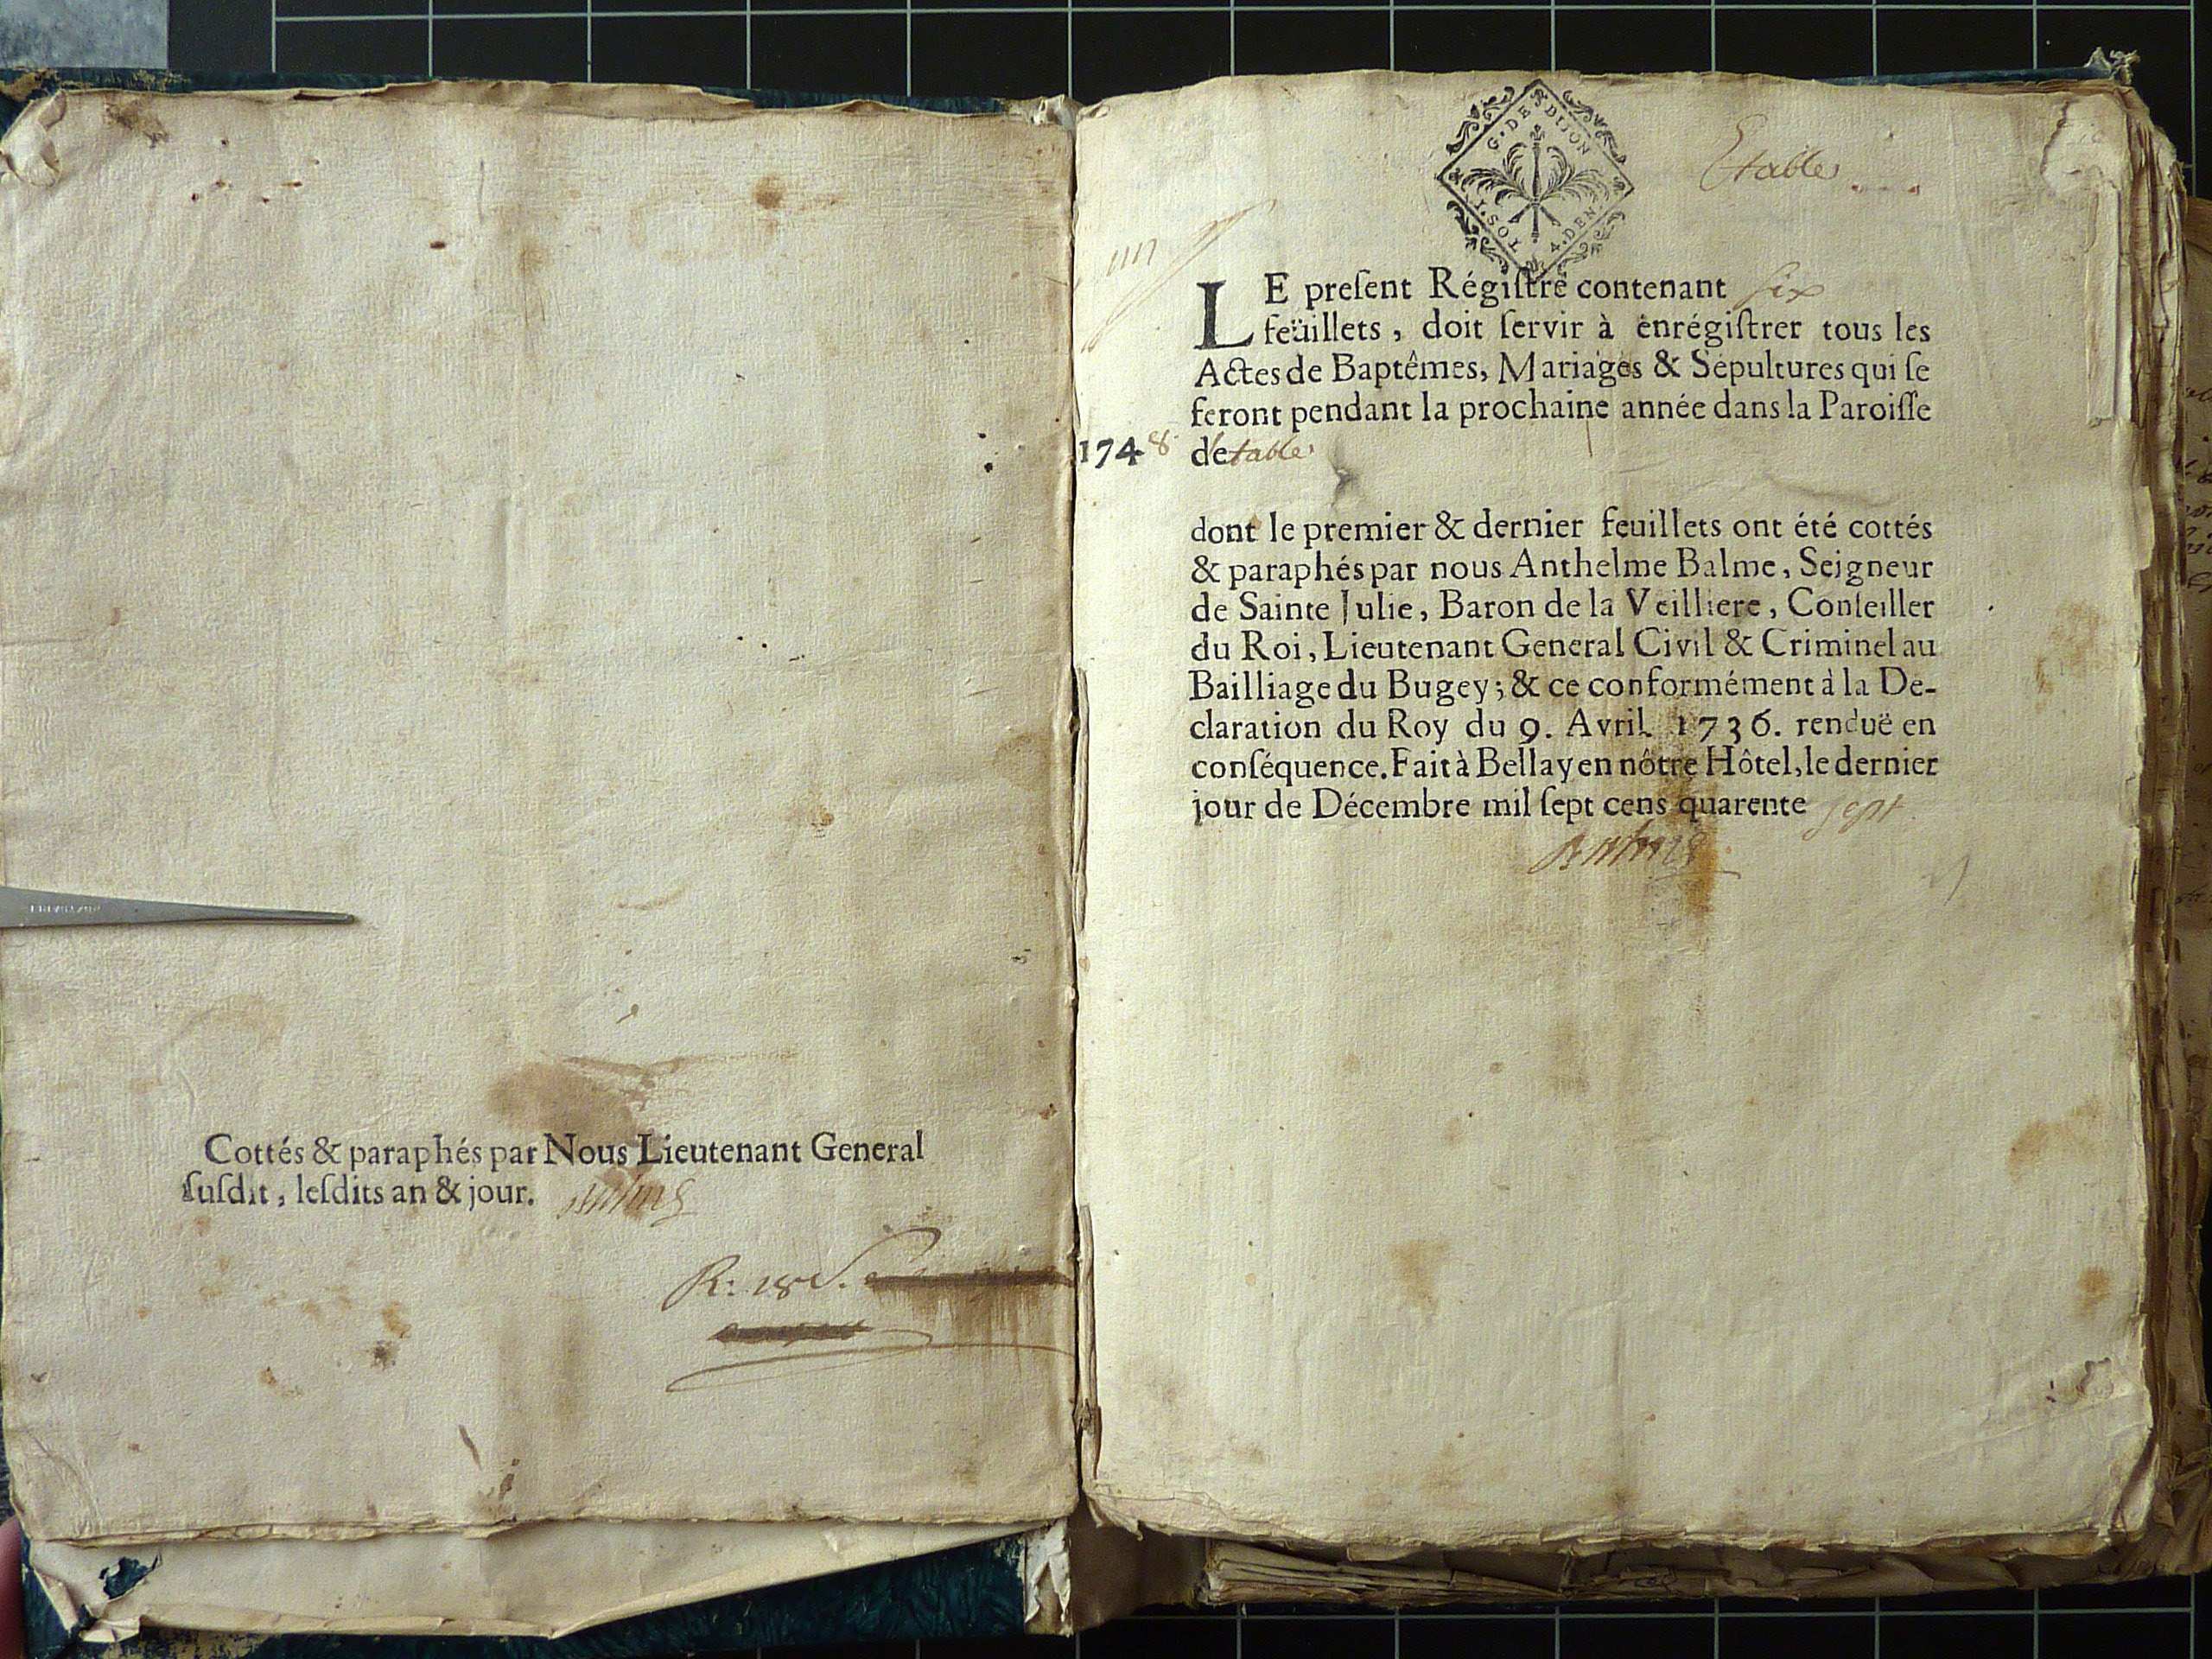 Cottés & paraphés par Nous Lieutenant General
ſuſdit, leſdits an & jour. Balme
R: 18 S.
G. DE DIJON
1. SOL 4. DEN
Etables
LE preſent Régiſtre contenant six
feüillets, doit ſervir à enrégiſtrer tous les
Actes de Baptêmes, Mariages & Sépultures qui ſe
feront pendant la prochaine année dans la Paroiſſe
1748 detables
dont le premier & dernier feuillets ont été cottés
& paraphés par nous Anthelme Balme, Seigneur
de Sainte Julie, Baron de la Veilliere, Conſeiller
du Roi, Lieutenant General Civil & Criminel au
Bailliage du Bugey; & ce conformément à la De-
claration du Roy du 9. Avril 1736. renduë en
conſéquence. Fait à Bellay en nôtre Hôtel, le dernier
jour de Décembre mil ſept cens quarente sept
Balme